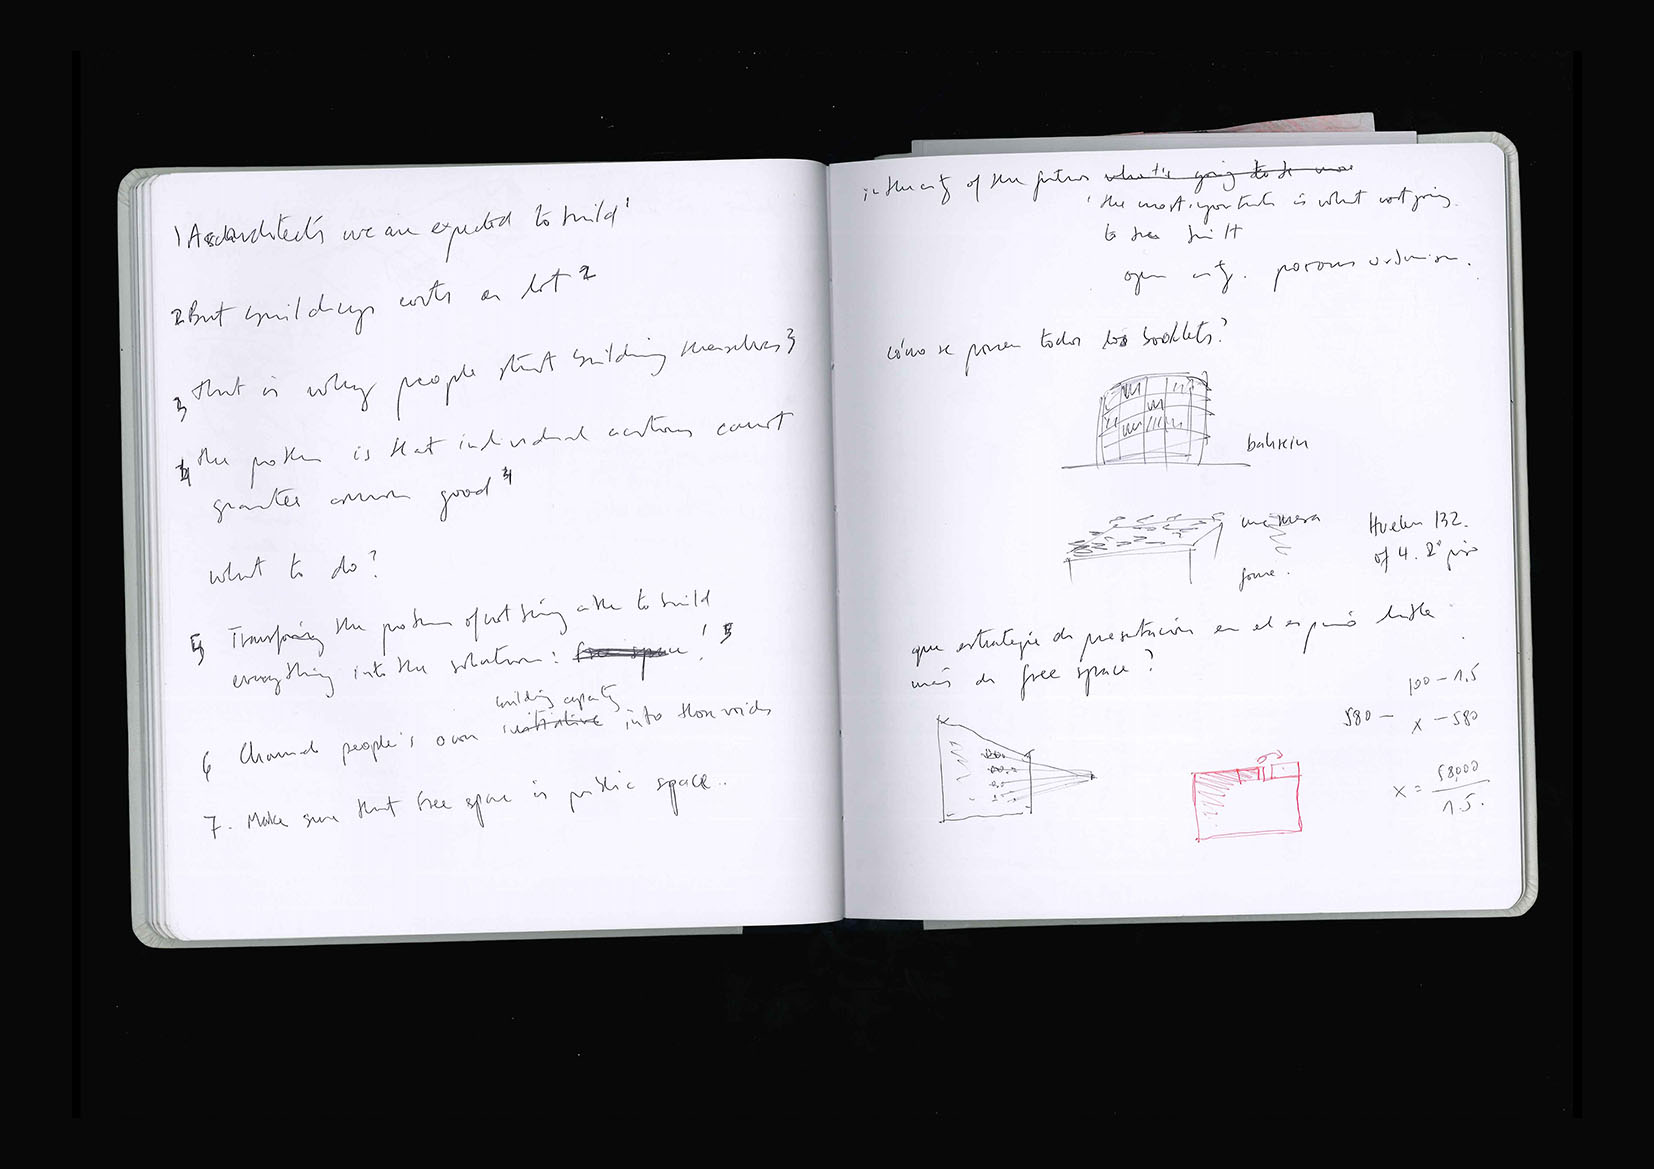 1 As architects we are expected to build 1
2. But buildings costs a lot 2
3 that is why people start building themselves 3
4 the problem is that individual actions cannot
grantee common good 4
what to do?
5 Transforming the problem of not being able to build
everything into the solution: free space! 5
building capacity
6 Channel people's own initiative into those voids
7. Make sure that free space is public space..
in the city of the future what is going to be more
the most important is what is not going
to be built
open city. porous urbanism.
cómo se ponen todos los booklets?
bahrein
una mesa
Huelen 132.
of 4. 2º piso
forme.
que estrategia de presentación en el espacio habla
más de free space?
100 - 1.5
580 - x - 580
x = 58000
1.5.